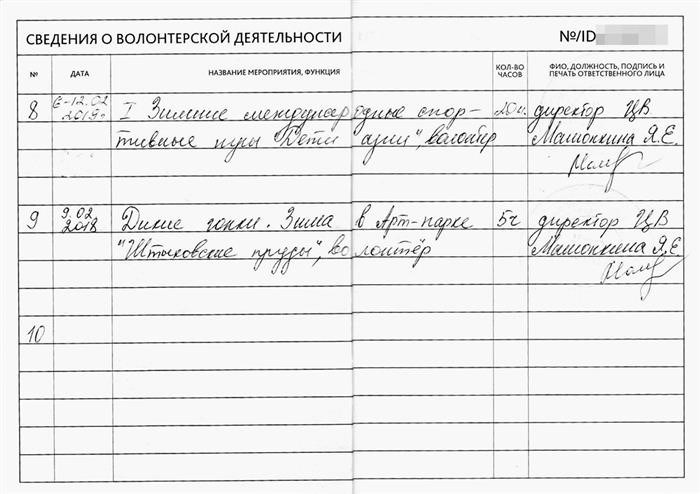 СВЕДЕНИЯ О ВОЛОНТЕРСКОЙ ДЕЯТЕЛЬНОСТИ №/ID
№ ДАТА НАЗВАНИЕ МЕРОПРИЯТИЯ, ФУНКЦИЯ КОЛ-ВО ЧАСОВ ФИО, ДОЛЖНОСТЬ, ПОДПИСЬ И ПЕЧАТЬ ОТВЕТСТВЕННОГО ЛИЦА
8 6-12.02 I Зимние международные спор- 20ч. директор ЦВ
2019г тивные игры "Дети азии", волонтёр Машонкина Я.Е.
9 9.02 Дикие гонки. Зима в Арт-парке 5ч директор ЦВ
2018 "Штыковские пруды", волонтёр Машонкина Я.Е.
10